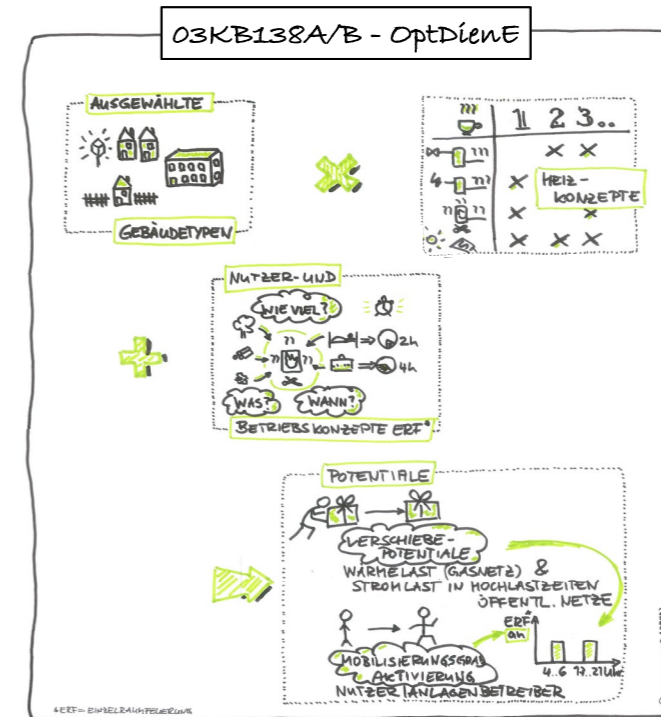 03KB138A/B - OptDienE
AUSGEWÄHLTE
GEBÄUDETYPEN
1 2 3..
HEIZ-
KONZEPTE
NUTZER-UND
WIE VIEL?
2h
4h
WAS?
WANN?
BETRIEBSKONZEPTE ERF*
POTENTIALE
VERSCHIEBE-
POTENTIALE
WÄRMELAST (GASNETZ) &
STROMLAST IN HOCHLASTZEITEN
ÖFFENTL. NETZE
ERF
an
4..6 17..21Uhr
MOBILISIERUNGSGRAD
AKTIVIERUNG
NUTZER/ANLAGENBETREIBER
*ERF=EINZELRAUMFEUERUNG